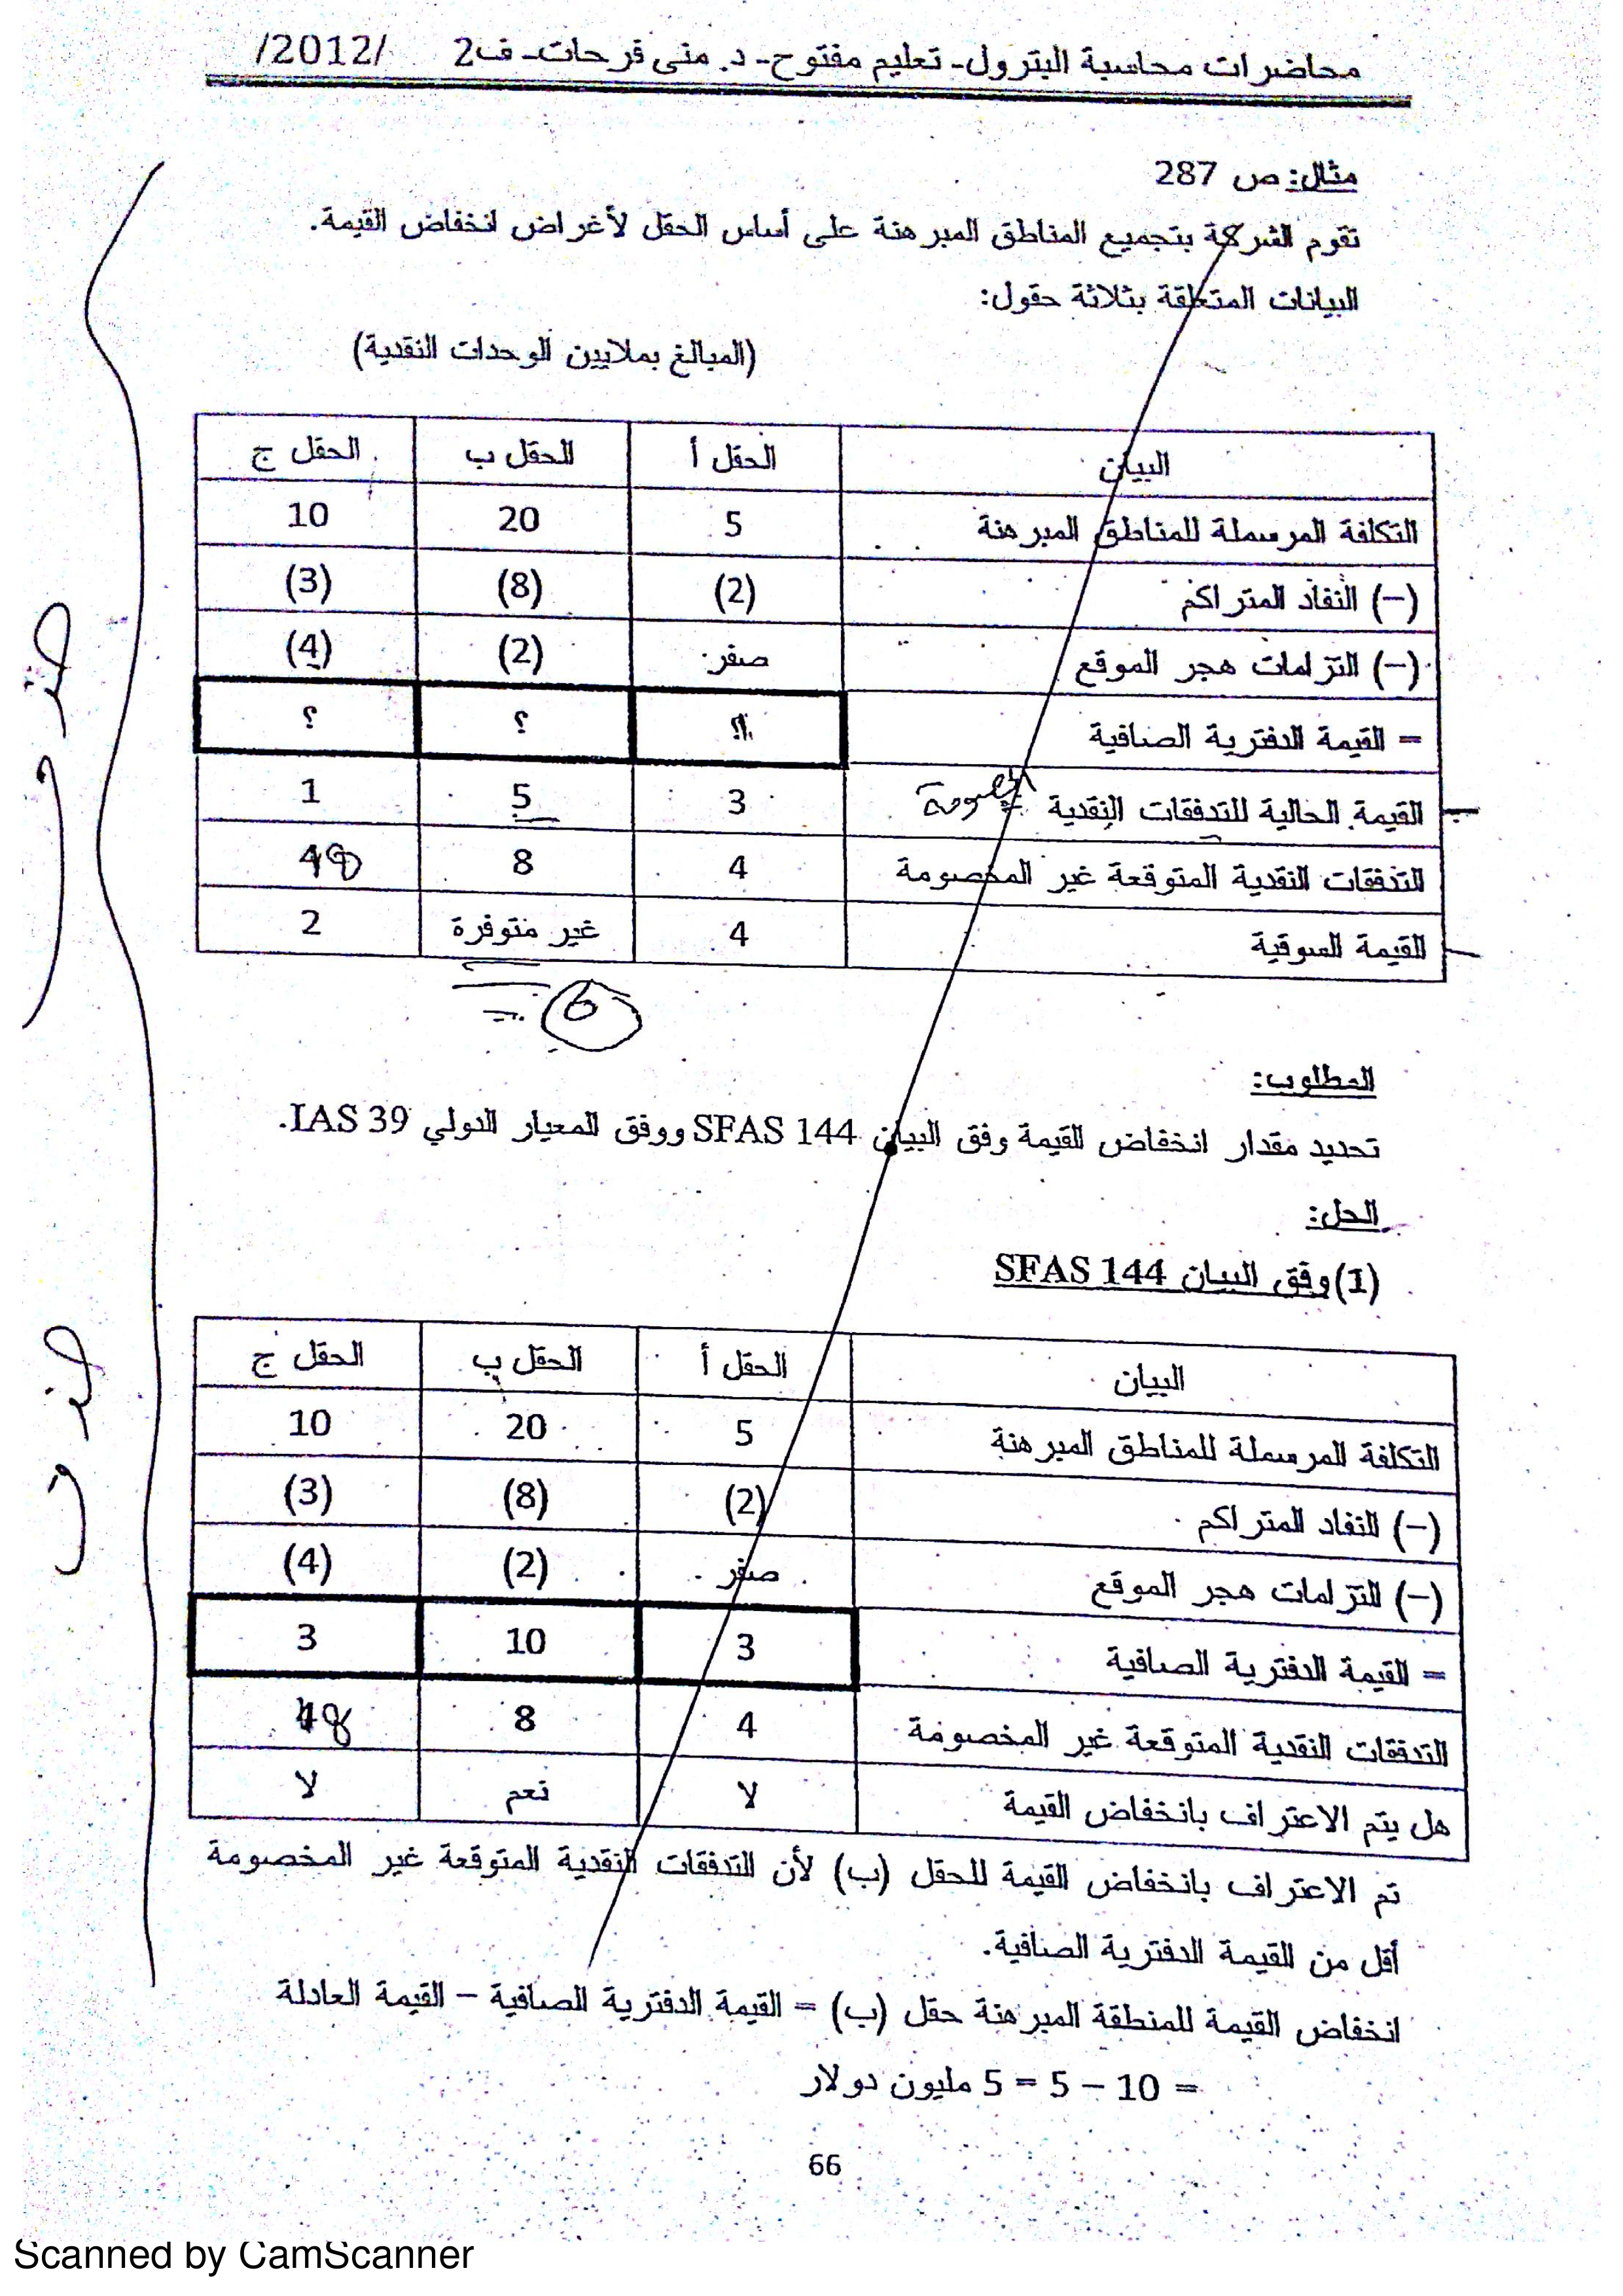 محاضرات محاسبة البترول- تعليم مفتوح- د. منى فرحات- ف2 /2012/
مثال: ص 287
تقوم الشركة بتجميع المناطق المبرهنة على أساس الحقل لأغراض انخفاض القيمة.
البيانات المتعلقة بثلاثة حقول:
(المبالغ بملايين الوحدات النقدية)
البيان الحقل أ الحقل ب الحقل ج
التكلفة المرسملة للمناطق المبرهنة 5 20 10
(–) النفاد المتراكم (2) (8) (3)
(–) التزامات هجر الموقع صفر (2) (4)
= القيمة الدفترية الصافية ؟ ؟ ؟
القيمة الحالية للتدفقات النقدية المخصومة 3 5 1
التدفقات النقدية المتوقعة غير المخصومة 4 8 48
القيمة السوقية 4 غير متوفرة 2
= 6
المطلوب:
تحديد مقدار انخفاض القيمة وفق البيان SFAS 144 ووفق المعيار الدولي IAS 39.
الحل:
(1) وفق البيان SFAS 144
البيان الحقل أ الحقل ب الحقل ج
التكلفة المرسملة للمناطق المبرهنة 5 20 10
(–) النفاد المتراكم (2) (8) (3)
(–) التزامات هجر الموقع صفر (2) (4)
= القيمة الدفترية الصافية 3 10 3
التدفقات النقدية المتوقعة غير المخصومة 4 8 48
هل يتم الاعتراف بانخفاض القيمة لا نعم لا
تم الاعتراف بانخفاض القيمة للحقل (ب) لأن التدفقات النقدية المتوقعة غير المخصومة
أقل من القيمة الدفترية الصافية.
انخفاض القيمة للمنطقة المبرهنة حقل (ب) = القيمة الدفترية الصافية – القيمة العادلة
= 10 – 5 = 5 مليون دولار
66
Scanned by CamScanner